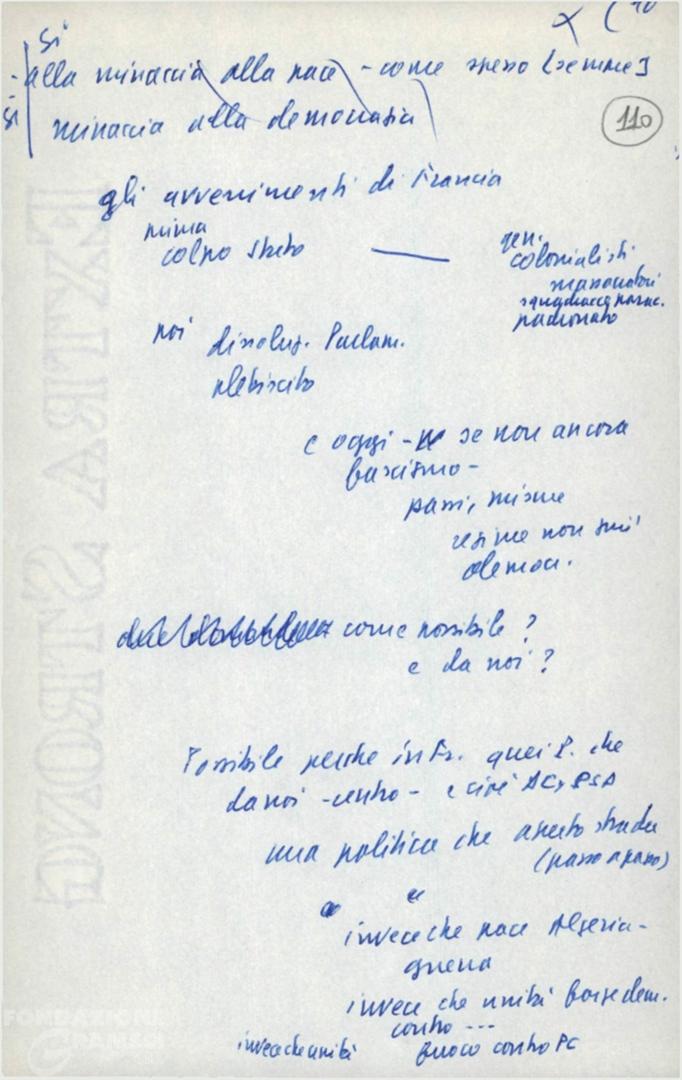 si
- alla minaccia alla pace - come spesso [sempre]
si
minaccia alla democrazia
110
gli avvenimenti di Francia
prima
colpo Stato —
gen.
colonialisti
massacratori
squadracce parac.
padronato
poi
dissoluz. Parlam.
plebiscito
e oggi - se non ancora
fascismo -
passi, misure
regime non più
democr.
come possibile?
e da noi?
Possibile perche in Fr. quei P. che
da noi - centro - e cioè DC, PSD
una politica che aperto strada
(passo a passo)
invece che pace Algeria -
guerra
invece che unità forze dem.
contro ---
invece che unità fuoco contro PC
EXTRA STRONG
FONDAZIONE
GRAMSCI